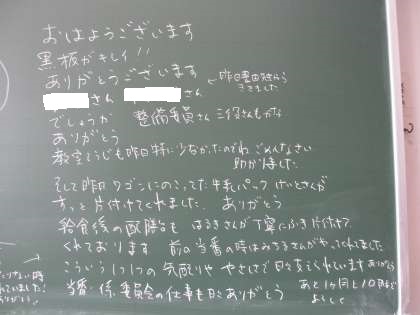 おはようございます
黒板がキレイ!!
ありがとうございます ← 昨日
さん さん
でしょうか 整備委員さん
ありがとう
教室そうじも昨日特に少なかったのでね ごめんなさい
助かりました
そして昨日 ワゴンにのこってた牛乳パック けいとさんが
すっと片付けてくれました ありがとう
給食後の配膳台も はるきさんが丁寧にふき片付けて
くれております 前の当番の時はみちるさんがやってくれました
こういう1つ1つの気配りや やさしさで日々支えられています ありがとう
当番・係・委員会の仕事も日々ありがとう あと1ヶ月と10日
よろしく